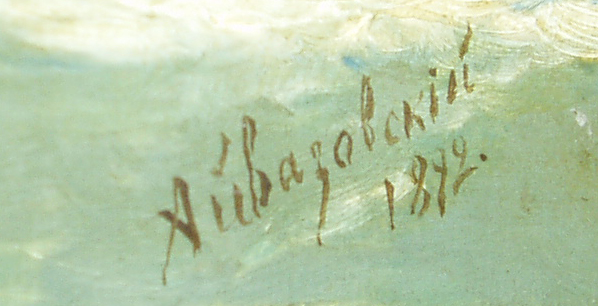 Айвазовскій
1892.